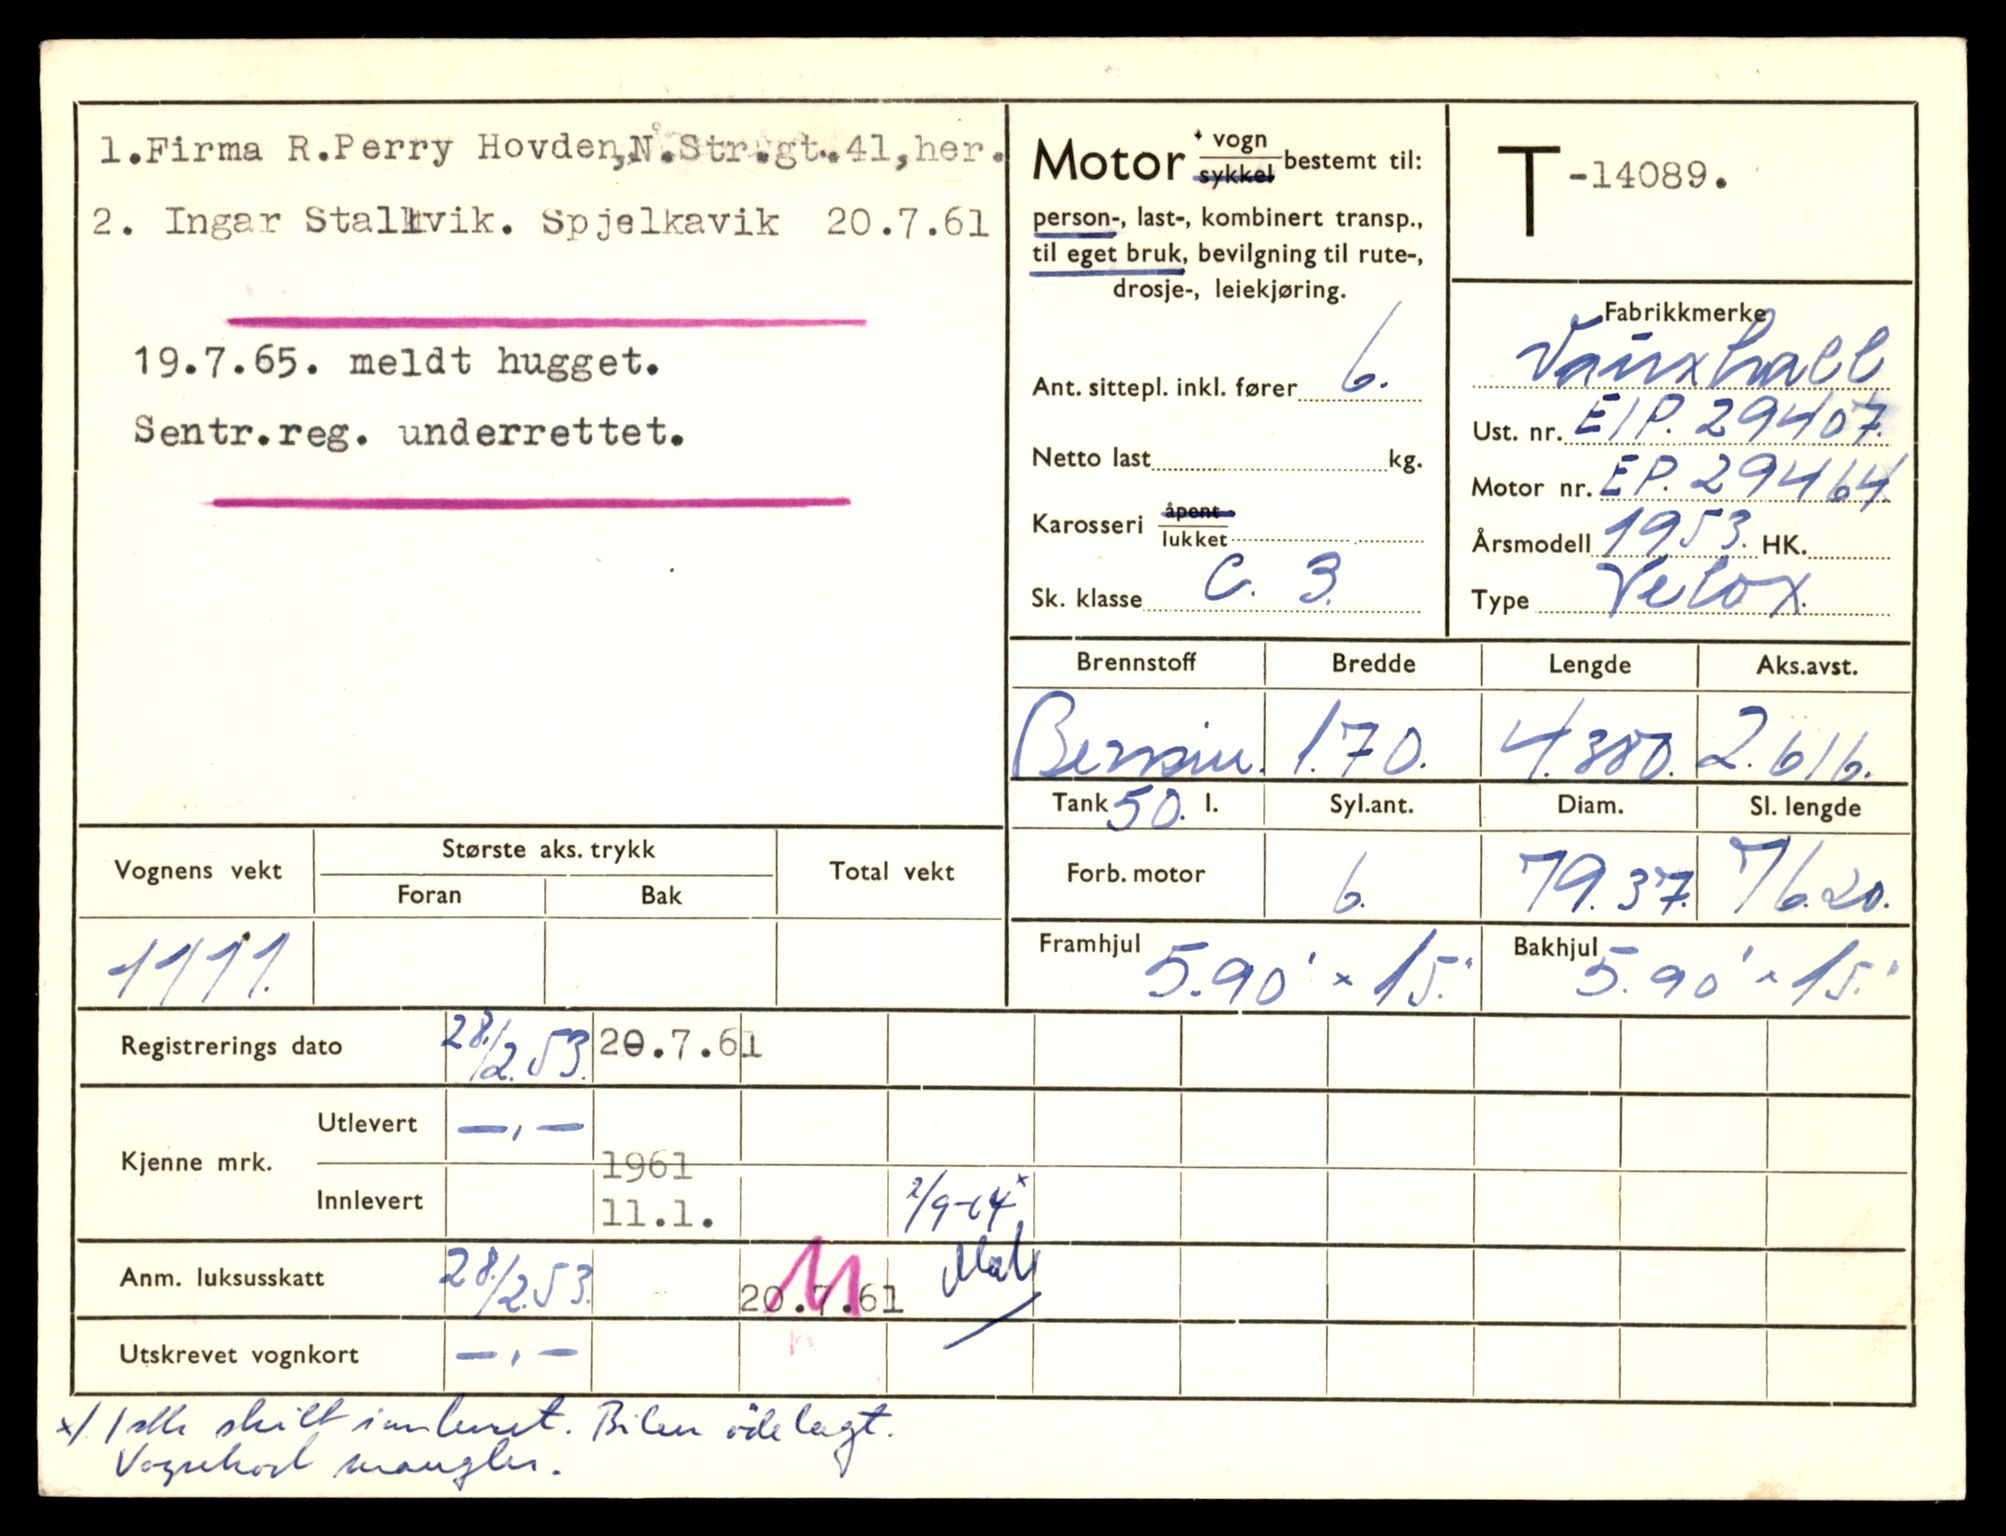 1.Firma R.Perry Hovden,N.Str.gt.41,her.
2. Ingar Stallvik. Spjelkavik 20.7.61
19.7.65. meldt hugget.
Sentr.reg. underrettet.
Motor vogn sykkel bestemt til:
person-, last-, kombinert transp.,
til eget bruk, bevilgning til rute-,
drosje-, leiekjøring.
Ant. sittepl. inkl. fører 6.
Netto last kg.
Karosseri åpent lukket
Sk. klasse C. 3.
T -14089.
Fabrikkmerke
Vauxhall
Ust. nr. EIP. 29407.
Motor nr. EP. 29464
Årsmodell 1953. HK.
Type Velox.
Brennstoff Bredde Lengde Aks.avst.
Bensin. 1.70. 4.380. 2.616.
Tank 50. l. Syl.ant. Diam. Sl. lengde
Forb. motor 6. 79.37. 76.20.
Framhjul 5.90' × 15.' Bakhjul 5.90' × 15.'
Vognens vekt Største aks. trykk Total vekt
Foran Bak
1111.
Registrerings dato 28/2.53. 20.7.61
Kjenne mrk. Utlevert —,—
1961
Innlevert 11.1. 2/9-64 x
Anm. luksusskatt 28/2.53. 20.7.61 11
Utskrevet vognkort —,—
x/ 1 stk skilt innlevert. Bilen ödelagt.
Vognkort mangler.